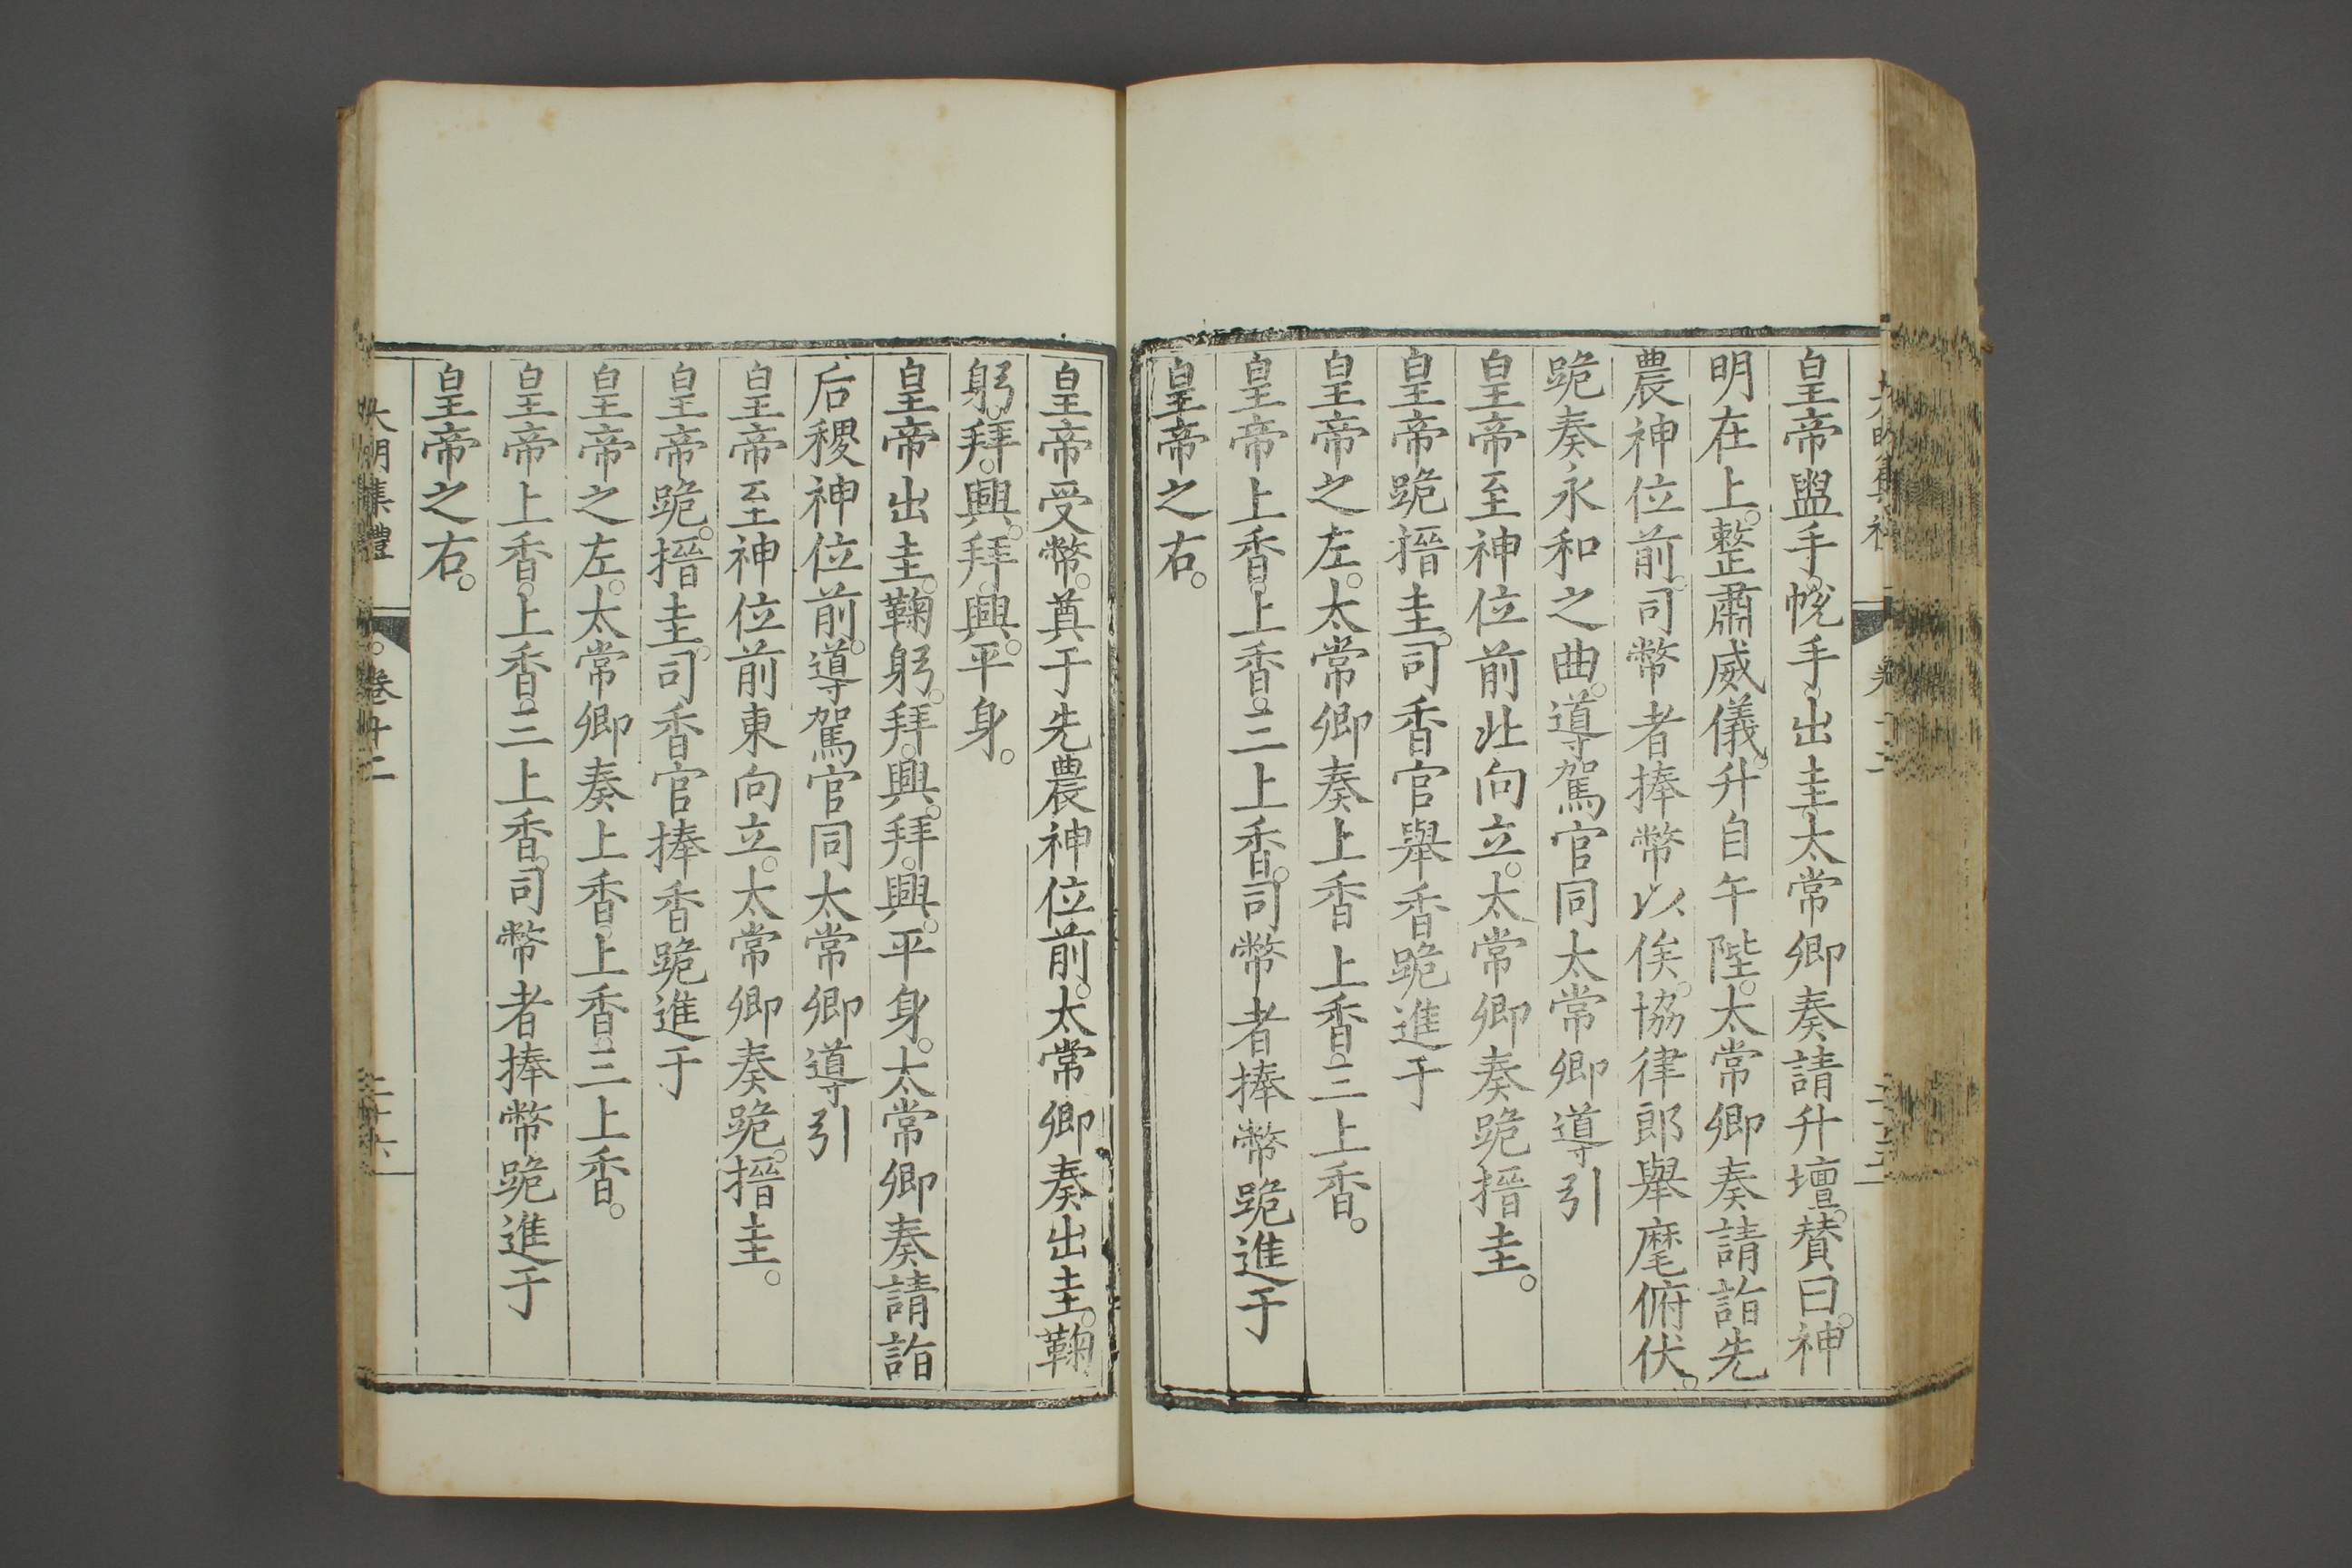 皇帝盥手。帨手。出圭。太常卿奏請升壇。賛曰。神
明在上。整肅威儀。升自午陛。太常卿奏請詣先
農神位前。司幣者捧幣以俟。協律郎舉麾俯伏。
跪奏永和之曲。導駕官同太常卿導引
皇帝至神位前北向立。太常卿奏跪搢圭。
皇帝跪搢圭。司香官舉香跪進于
皇帝之左。太常卿奏上香上香。三上香。
皇帝上香。上香。三上香。司幣者捧幣跪進于
皇帝之右。
皇帝受幣。奠于先農神位前。太常卿奏出圭。鞠
躬。拜。興。拜。興。平身。
皇帝出圭。鞠躬。拜。興。拜。興。平身。太常卿奏請詣
后稷神位前。導駕官同太常卿導引
皇帝至神位前東向立。太常卿奏跪。搢圭。
皇帝跪。搢圭。司香官捧香跪進于
皇帝之左。太常卿奏上香。上香。三上香。
皇帝上香。上香。三上香。司幣者捧幣跪進于
皇帝之右。
大明集禮 卷十二 二十六